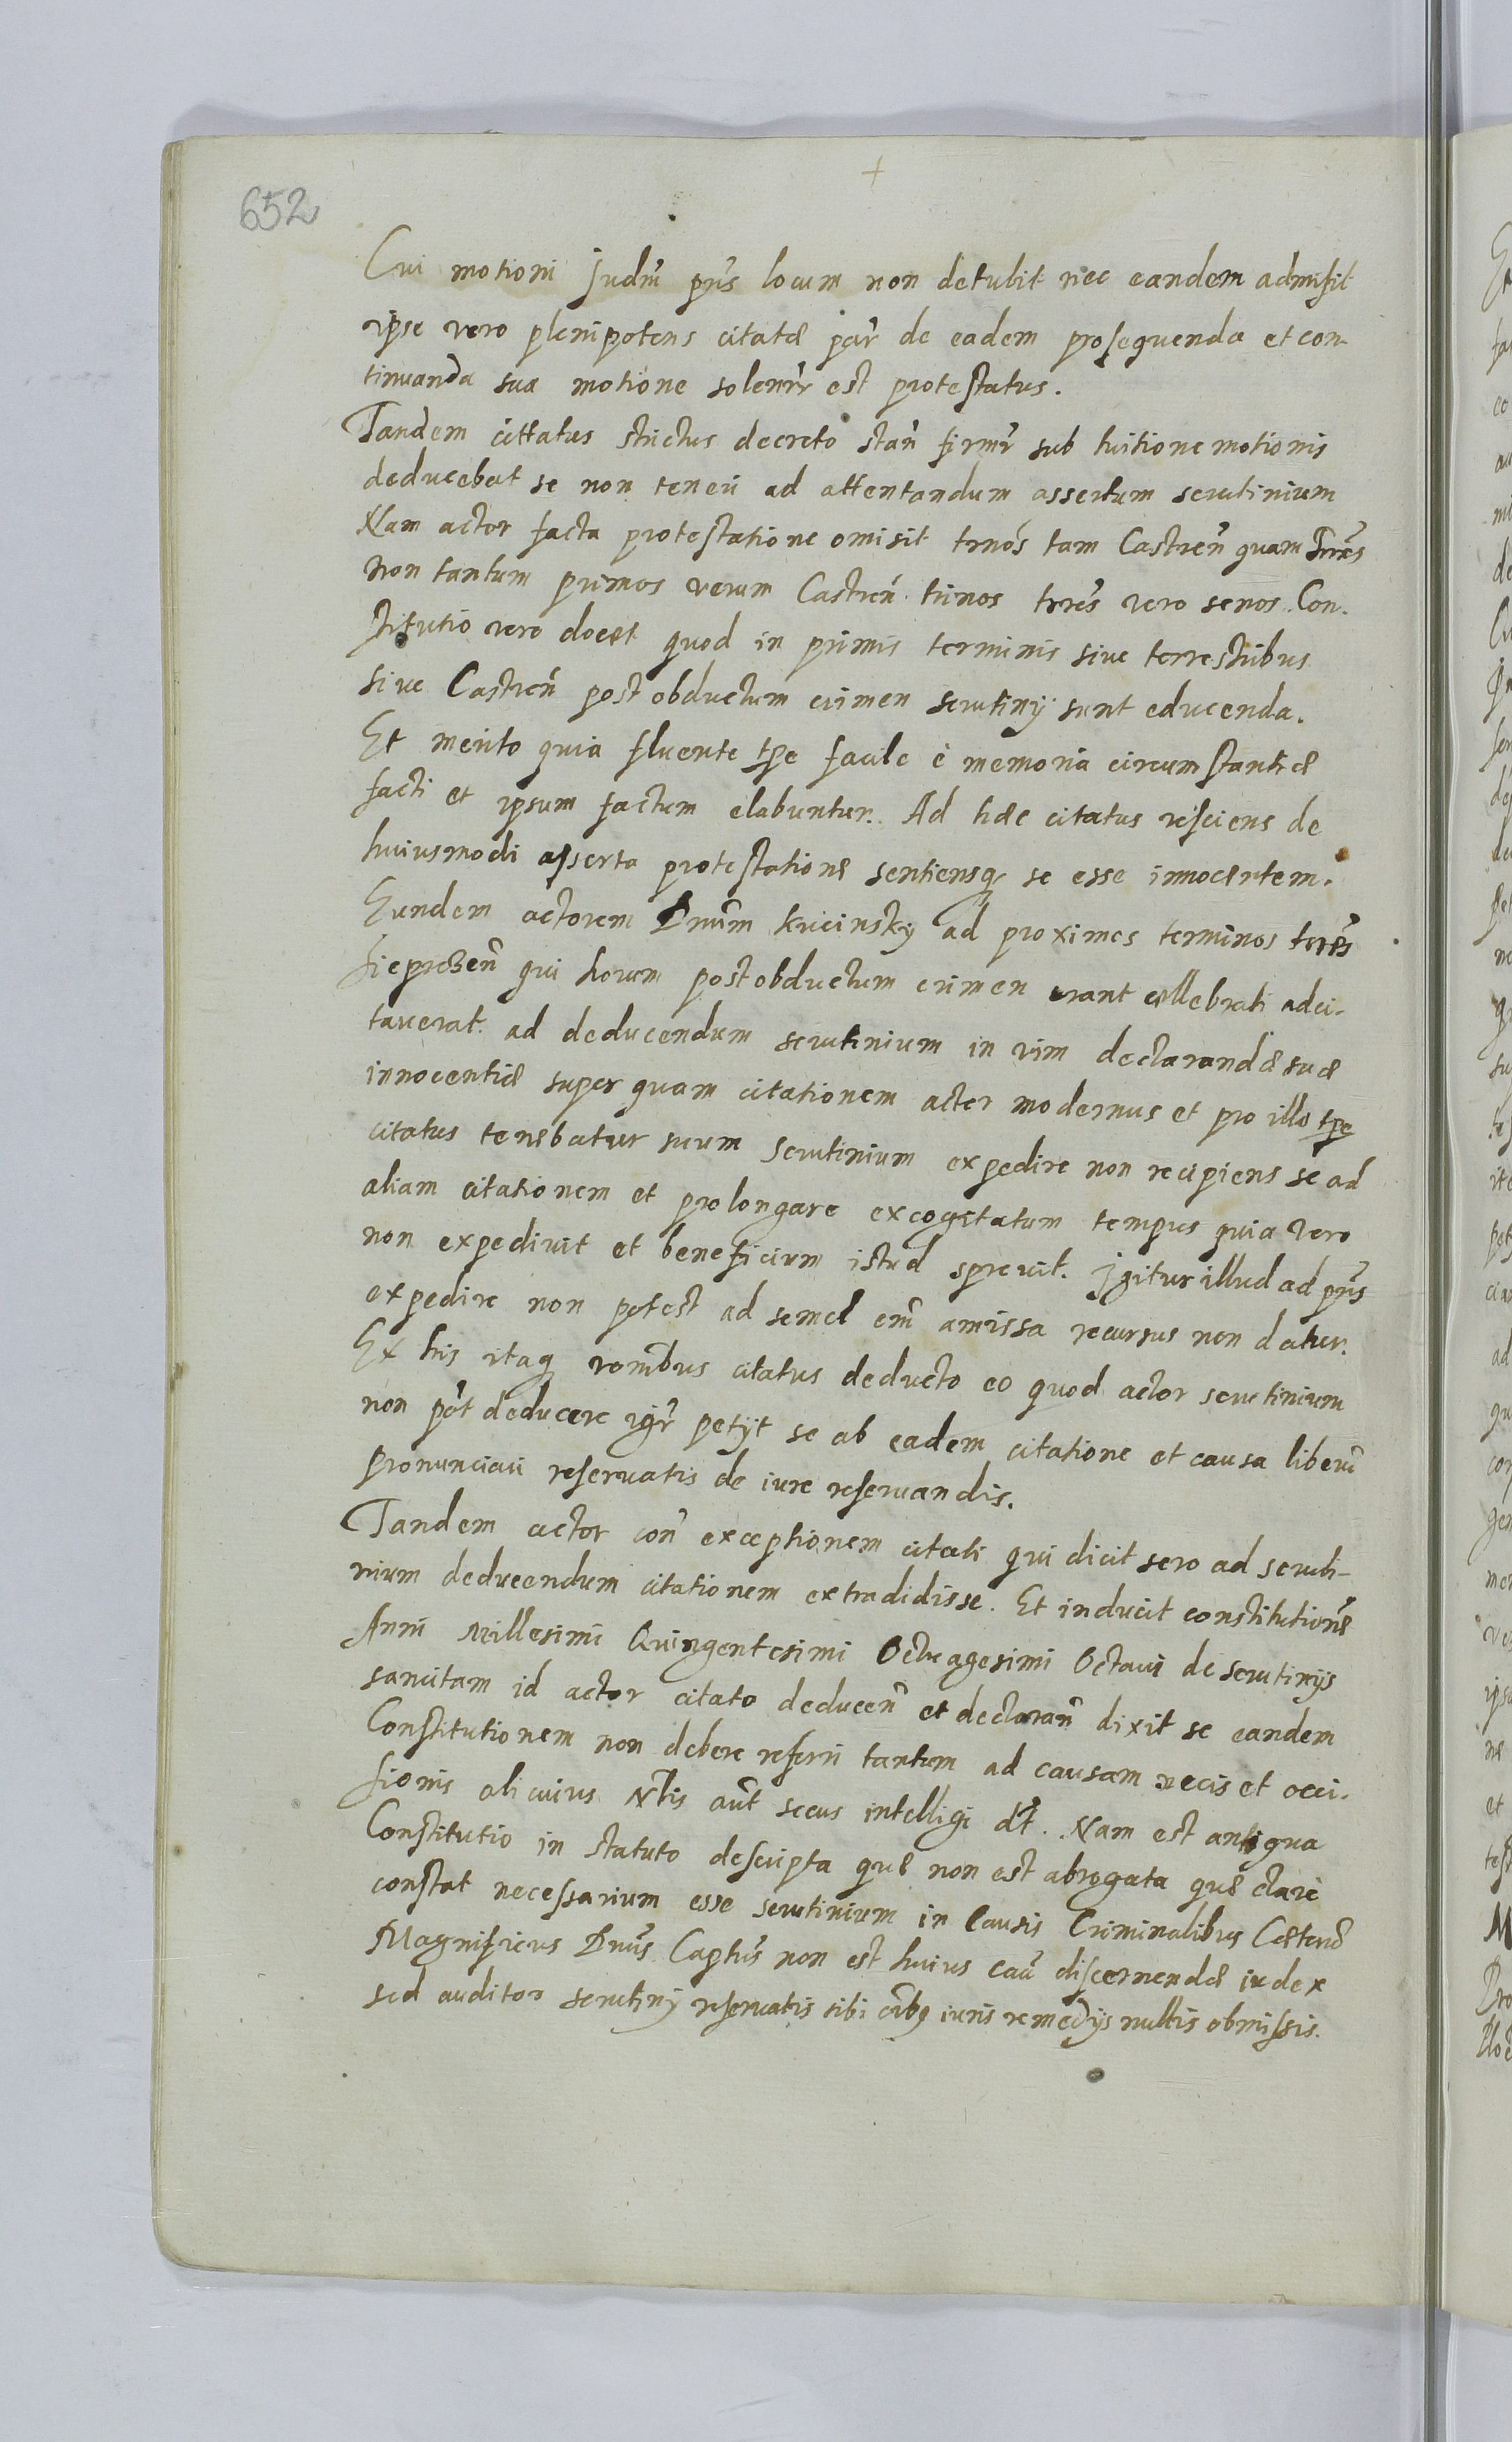 652
Cui motioni Judm̃ pñs locum non detulit nec eandem admisit
ipse vero plenipotens citatæ par̃ de eadem prosequenda et con-
tinuanda sua motione solenĩr est protestatus.
Tandem cittatus strictus decreto stañ firmr̃ sub tuitione motionis
deducebat se non teneri ad attentandum assertum scrutinium
Nam actor facta protestatione omisit trnós tam Castreñ quam Trrẽs
non tantum primos verum Castreñ trinos trrẽs vero senos. Con-
stitutio vero docet quod in primis terminis sive terrestribus
sive Castreñ post obductum crimen scrutinÿ sunt educenda.
Et merito quia fluente tpe facile è memoria circumstantiæ
facti et ipsum factum elabuntur. Ad hæc citatus resciens de
huiusmodi asserta protestatione sentiensq se esse innocentem.
Eundem actorem Dnũm Kricinsky ad proximos terminos trrẽs
Sieprcẽn qui horum post obductum crimen erant cellebrati adci-
taverat. ad deducendum scrutinium in vim declarandæ suæ
innocentiæ super quam citationem actor modernus et pro illo tpe
citatus tenebatur suum scrutinium expedire non recipiens se ad
aliam citationem et prolongare excogitatum tempus quia vero
non expedivit et beneficium istud sprevit. Igitur illud ad pñs
expedire non potest ad semel em̃ amissa recursus non datur.
Ex his itaq ronĩbus citatus deducto eo quod actor scrutinium
non põt deducere igr̃ petÿt se ab eadem citatione et causa liberũ
pronunciari reservatis de iure reservandis.
Tandem actor coñ exceptionem citati qui dicit sero ad scruti-
nium deducendum citationem extradidisse. Et inducit constitutionẽ
Anni Millesimi Quingentesimi Octuagesimi Octavi de scrutinÿs
sancitam id actor citato deduceñ et declarañ dixit se eandem
Constitutionem non debere referri tantum ad causam necis et occi-
sionis alicuius Nlĩs aũt secus intelligi dt̃. Nam est antiqua
Constitutio in statuto descripta quæ non est abrogata quæ clare
constat necessarium esse scrutinium in Causis Criminalibus Cæterũ
Magnificus Dnũs Captũs non est huius caũ discernendæ iudex
sed auditor scrutinÿ reservatis sibi oĩbq iuris remedÿs nullis obmissis.